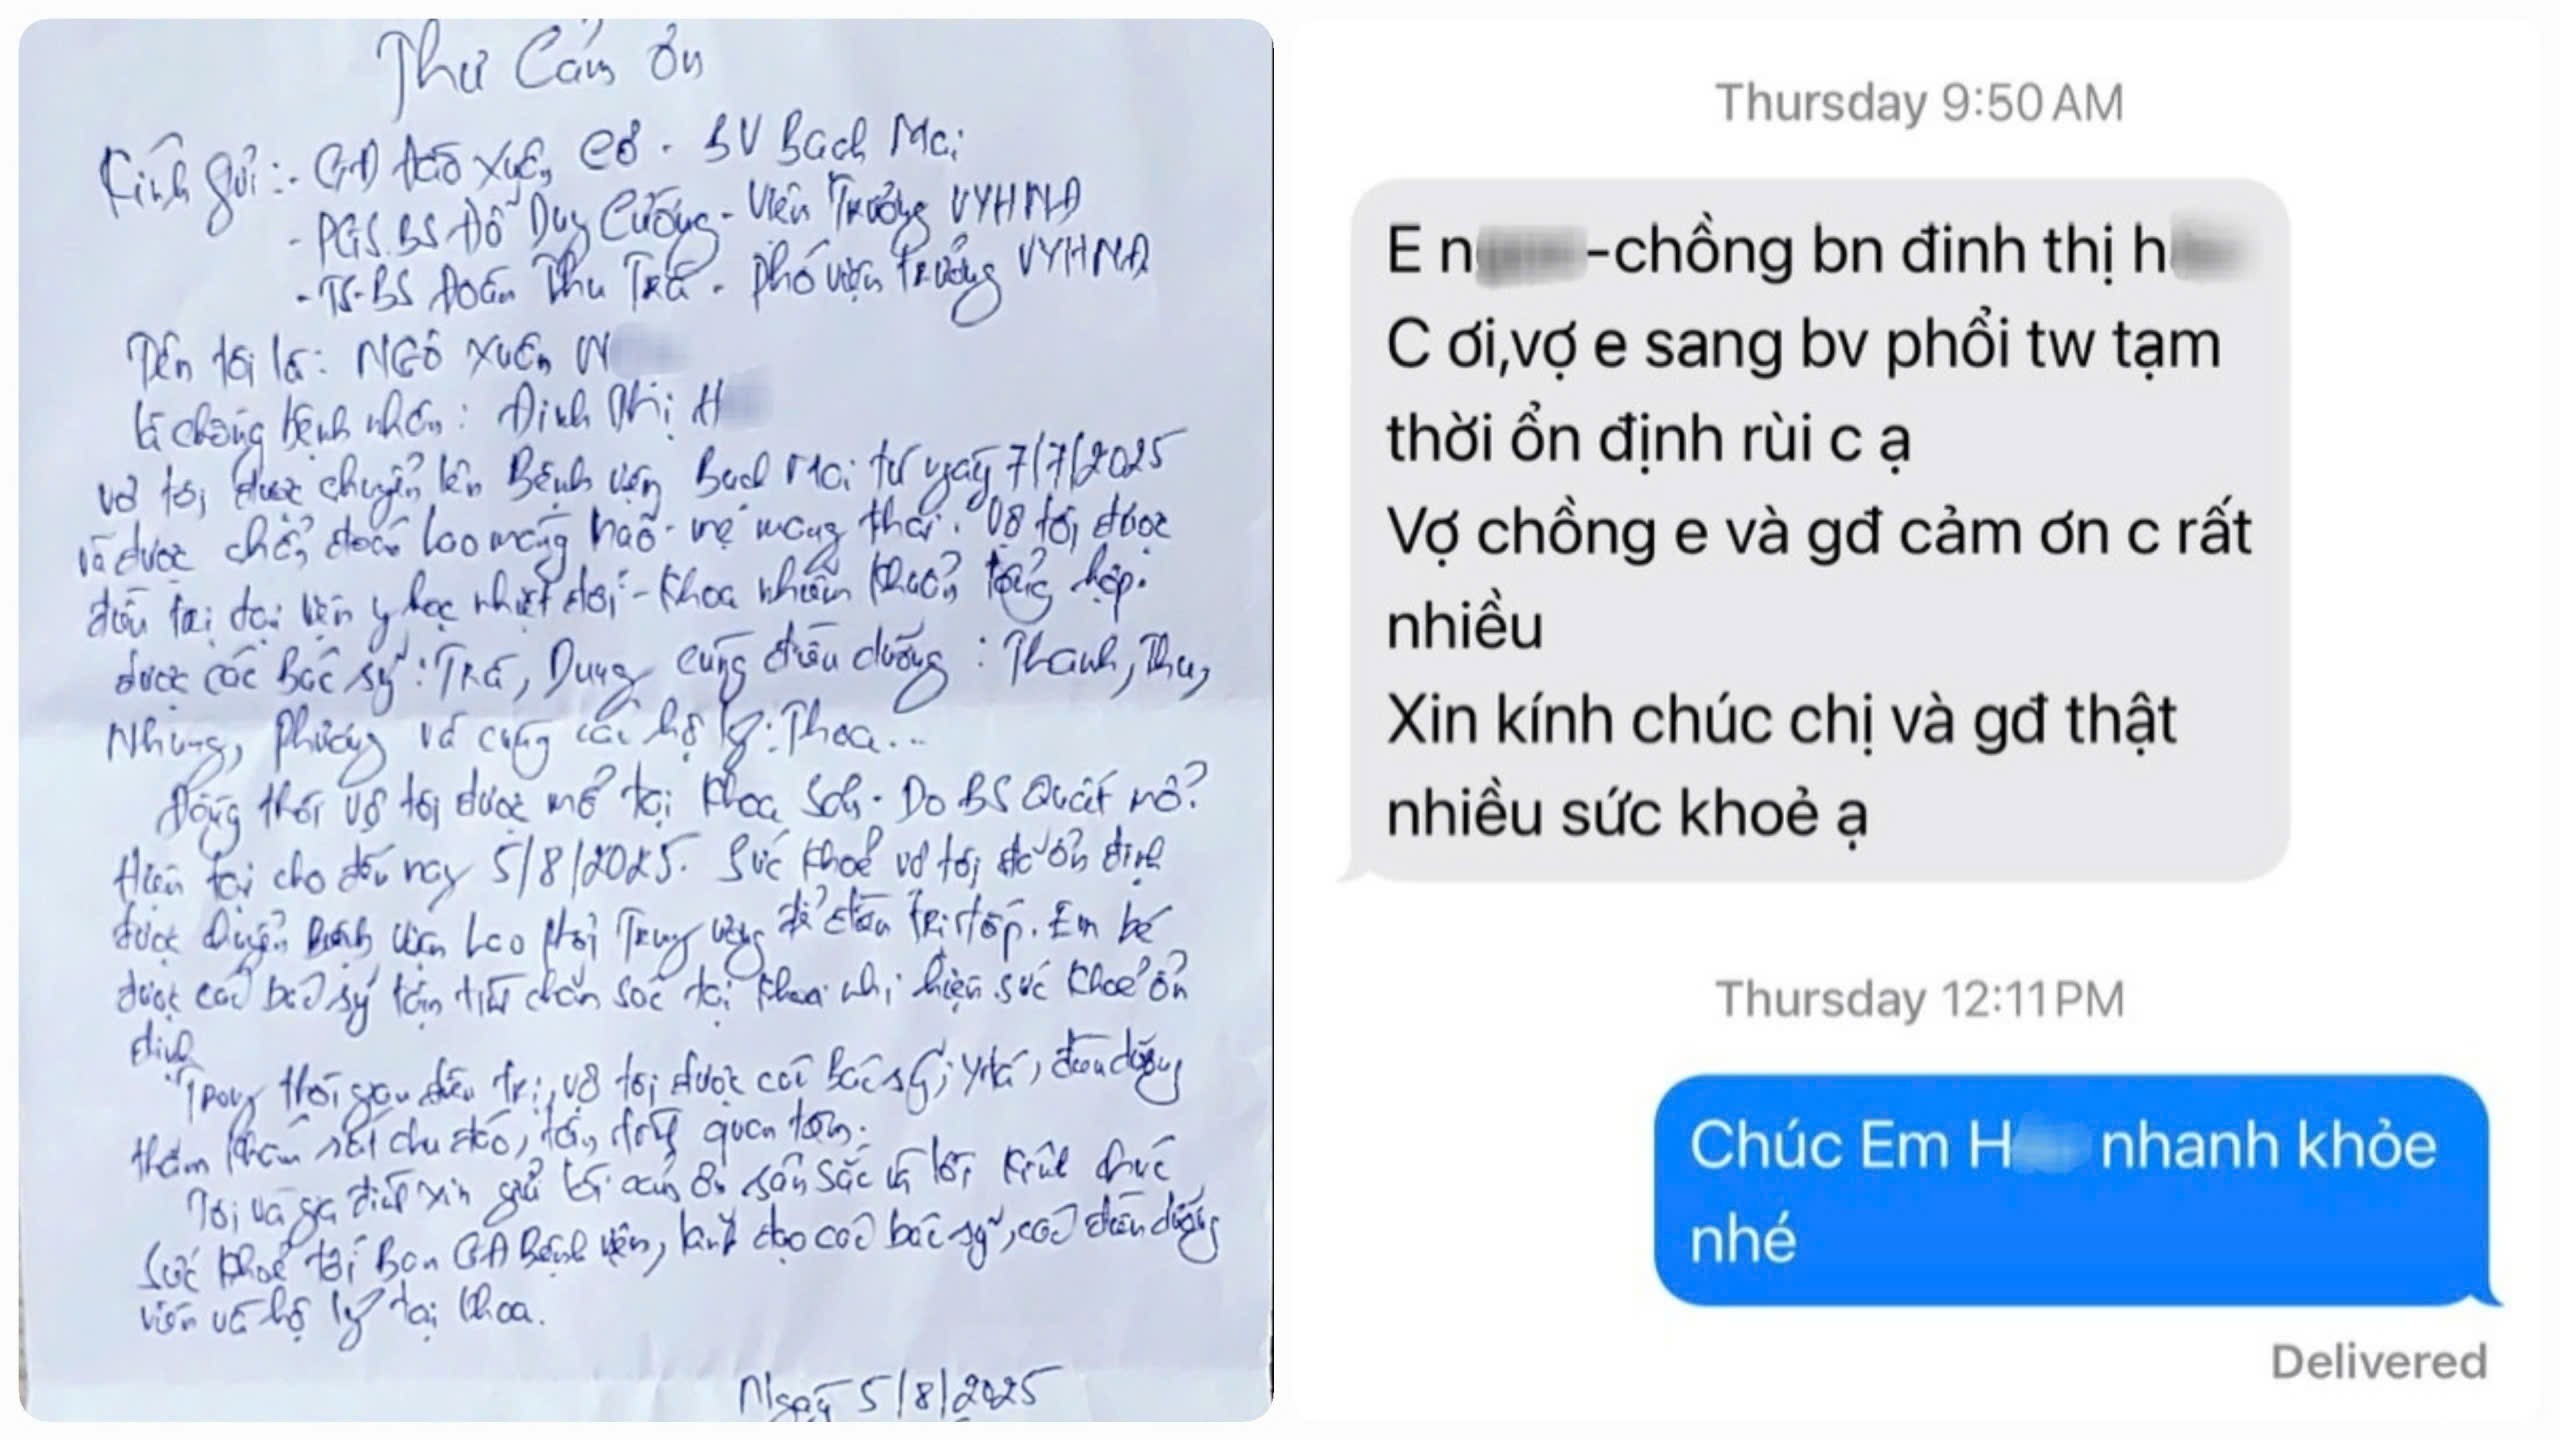 Thư Cảm ơn
Kính gửi: - GĐ Đào Xuân Cơ - BV Bạch Mai
- PGS.BS Đỗ Duy Cường - Viện Trưởng VYHNĐ
- TS-BS Đoàn Thu Trà - Phó viện trưởng VYHNĐ
Tên tôi là: NGÔ XUÂN N
là chồng bệnh nhân: Đinh Thị H
vợ tôi được chuyển lên Bệnh viện Bạch Mai từ ngày 7/7/2025
và được chẩn đoán lao màng não - mẹ mang thai. Vợ tôi được
điều trị tại viện y học nhiệt đới - khoa nhiễm khuẩn tổng hợp.
được các bác sỹ: Trà, Dung cùng điều dưỡng: Thanh, Thu,
Nhung, Phương và cùng các hộ lý: Thoa...
Đồng thời vợ tôi được mổ tại khoa Sản. Do BS Quát mổ.
Hiện tại cho đến nay 5/8/2025. Sức khoẻ vợ tôi đã ổn định
được chuyển Bệnh viện Lao phổi Trung ương để điều trị tiếp. Em bé
được các bác sỹ tận tình chăm sóc tại khoa nhi hiện sức khoẻ ổn
định
Trong thời gian điều trị, vợ tôi được các bác sĩ, y tá, điều dưỡng
thăm khám rất chu đáo, tận tình quan tâm.
Tôi và gia đình xin gửi lời cảm ơn sâu sắc và lời kính chúc
sức khoẻ tới Ban GĐ Bệnh viện, lãnh đạo các bác sỹ, các điều dưỡng
viên và hộ lý tại khoa.
Ngày 5/8/2025
Thursday 9:50 AM
E n -chồng bn đinh thị h
C ơi,vợ e sang bv phổi tw tạm
thời ổn định rùi c ạ
Vợ chồng e và gđ cảm ơn c rất
nhiều
Xin kính chúc chị và gđ thật
nhiều sức khoẻ ạ
Thursday 12:11 PM
Chúc Em H nhanh khỏe
nhé
Delivered